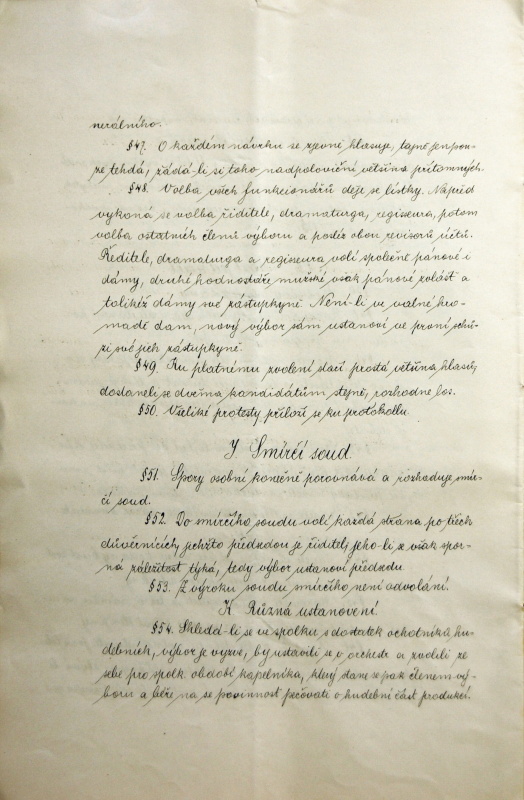 nerálního.
§47. O každém návrhu se zjevně hlasuje, tajně jen pou-
ze tehdá, žádá-li si toho nadpoloviční většina přítomných.
§48. Volba všech funkcionářů děje se lístky. Napřed
vykoná se volba ředitele, dramaturga, regisseura, potom
volba ostatních členů výboru a posléz obou revisorů účtů.
Ředitele, dramaturga a regisseura volí společně pánové i
dámy, druhé hodnostáře mužské však pánové zvlášť a
tolikéž dámy své zástupkyně. Není-li ve valné hro-
madě dam, nový výbor sám ustanoví ve první schů-
zi své jich zástupkyně.
§49. Ku platnému zvolení stačí prostá většina hlasů,
dostane-li se dvěma kandidátům stejně, rozhodne los.
§50. Veškeré protesty přiloží se ku protokollu.
I. Smírčí soud.
§51. Spory osobní konečně porovnává a rozhoduje smír-
čí soud.
§52. Do smírčího soudu volí každá strana po třech
důvěrnících, jichžto předsedou je ředitel, jeho-li se však spor-
ná záležitost týká, tedy výbor ustanoví předsedu.
§53. Z výroku soudu smírčího není odvolání.
K. Různá ustanovení.
§54. Shledá-li se ve spolku s dostatek ochotníků hu-
debních, výbor je vyzve, by ustavili se v orchestr a zvolili ze
sebe pro spolk. období kapelníka, který stane se pak členem vý-
boru a béře na se povinnost pečovati o hudební část produkcí.